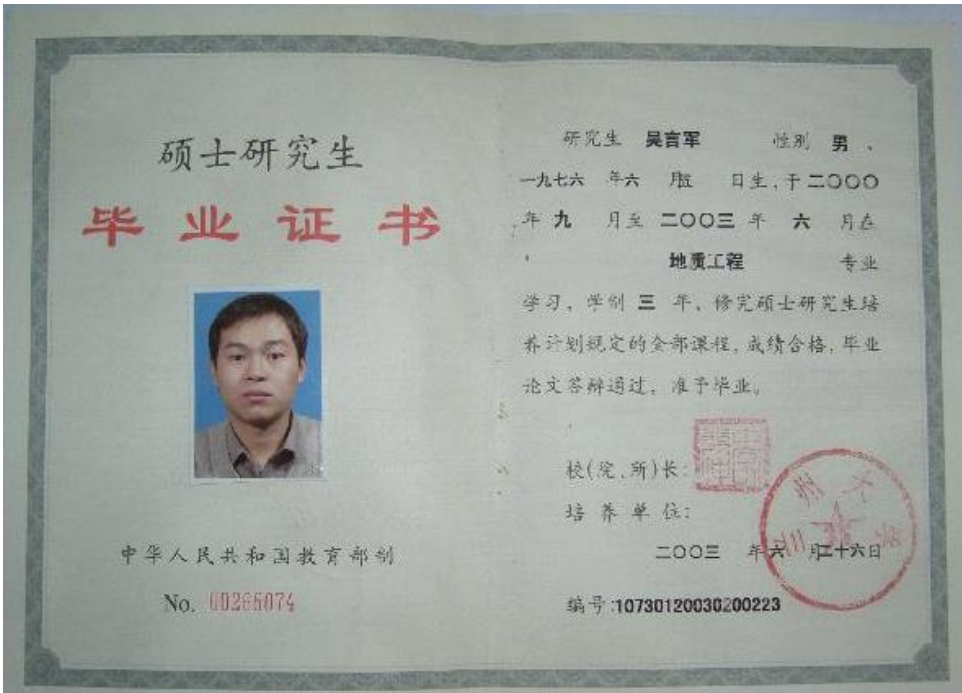 硕士研究生
毕业证书
中华人民共和国教育部制
No. 00266074
研究生 吴言军 性别 男，
一九七六 年六 月 日生，于二〇〇〇
年 九 月至 二〇〇三 年 六 月在
地质工程 专业
学习，学制 三 年，修完硕士研究生培
养计划规定的全部课程，成绩合格，毕业
论文答辩通过，准予毕业。
校(院、所)长：
培养单位：
二〇〇三 年六 月二十六日
编号:10730120030200223
州大学